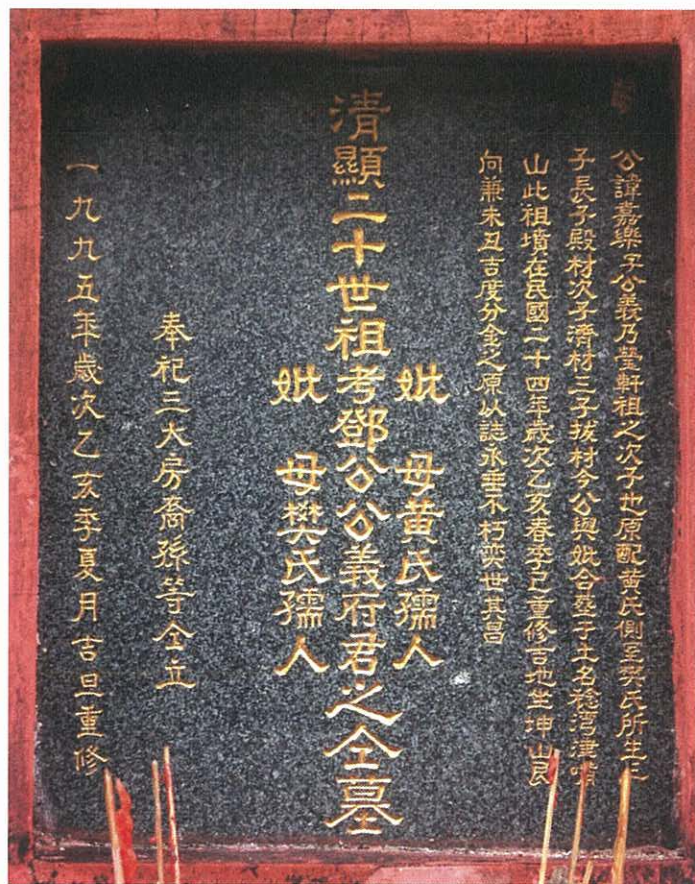 公諱嘉樂字公義乃瑩軒祖之次子也原配黃氏側室樊氏所生三
子長子殿材次子濟材三子拔材今公與妣合塟于土名稔湾津嘴
山此祖墳在民國二十四年歲次乙亥春季已重修吉地坐坤山艮
向兼未丑吉度分金之原以誌永垂不朽奕世其昌
妣母黃氏孺人
清顯二十世祖考鄧公公義府君之仝墓
妣母樊氏孺人
奉祀三大房裔孫等仝立
一九九五年歲次乙亥季夏月吉旦重修